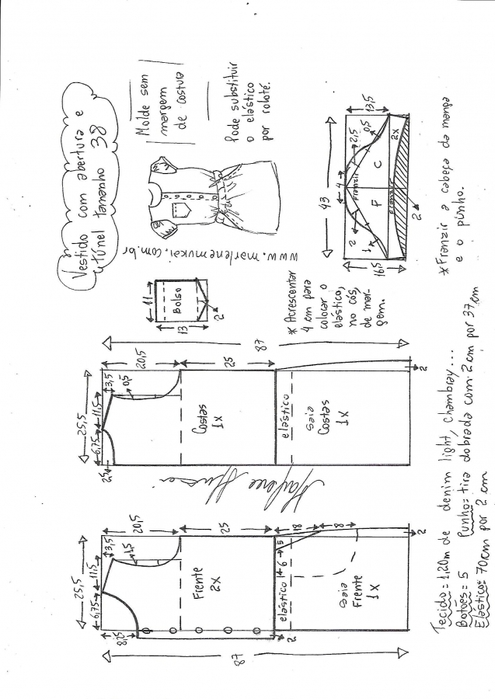 Vestido com abertura e
túnel tamanho 38
Molde sem
margem
de costura
Pode substituir
o elástico
por roloté.
www.marlenemukai.com.br
11
Bolso
13
2
43
4
2,5
0,5
13,5
2
1
Franzir
F
C
2x
16,5
2
* Franzir a cabeça da manga
e o punho.
* Acrescentar
4 cm para
colocar o
elástico,
no cós,
de mar-
gem.
87
20,5
25
25,5
6,75
11,5
3,5
0,5
Costas
1x
elástico
Saia
Costas
1x
2
Marlene Mukai
20,5
25
18
18
25,5
6,75
11,5
3,5
1,5
Frente
2x
elástico
6
5
Saia
Frente
1x
2
2
87
Tecido = 1,20m de denim light, chambray...
Botões = 5 Punho: tira dobrada com 2 cm por 37 cm
Elástico: 70 cm por 2 cm